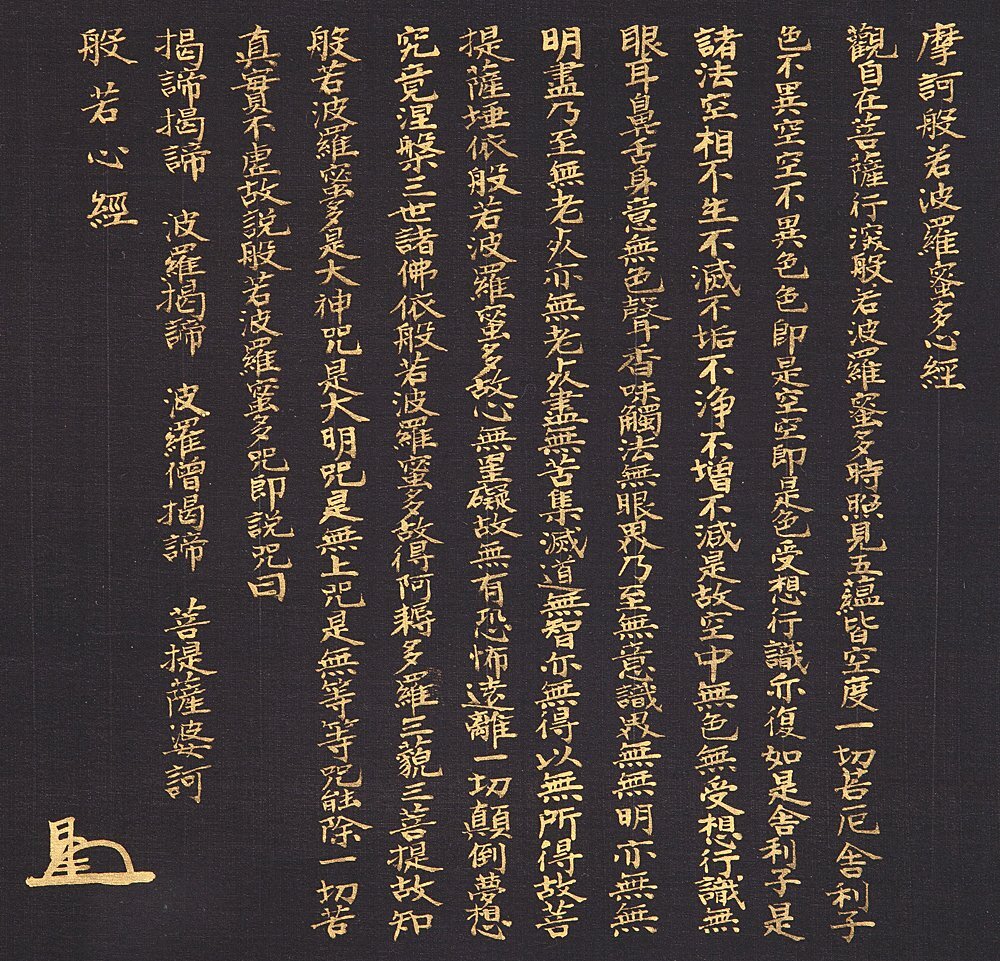 摩訶般若波羅蜜多心經
觀自在菩薩行深般若波羅蜜多時照見五蘊皆空度一切苦厄舍利子
色不異空空不異色色即是空空即是色受想行識亦復如是舍利子是
諸法空相不生不滅不垢不淨不增不減是故空中無色無受想行識無
眼耳鼻舌身意無色聲香味觸法無眼界乃至無意識界無無明亦無無
明盡乃至無老死亦無老死盡無苦集滅道無智亦無得以無所得故菩
提薩埵依般若波羅蜜多故心無罣礙故無有恐怖遠離一切顛倒夢想
究竟涅槃三世諸佛依般若波羅蜜多故得阿耨多羅三藐三菩提故知
般若波羅蜜多是大神咒是大明咒是無上咒是無等等咒能除一切苦
真實不虛故説般若波羅蜜多咒即説咒曰
揭諦揭諦 波羅揭諦 波羅僧揭諦 菩提薩婆訶
般若心經